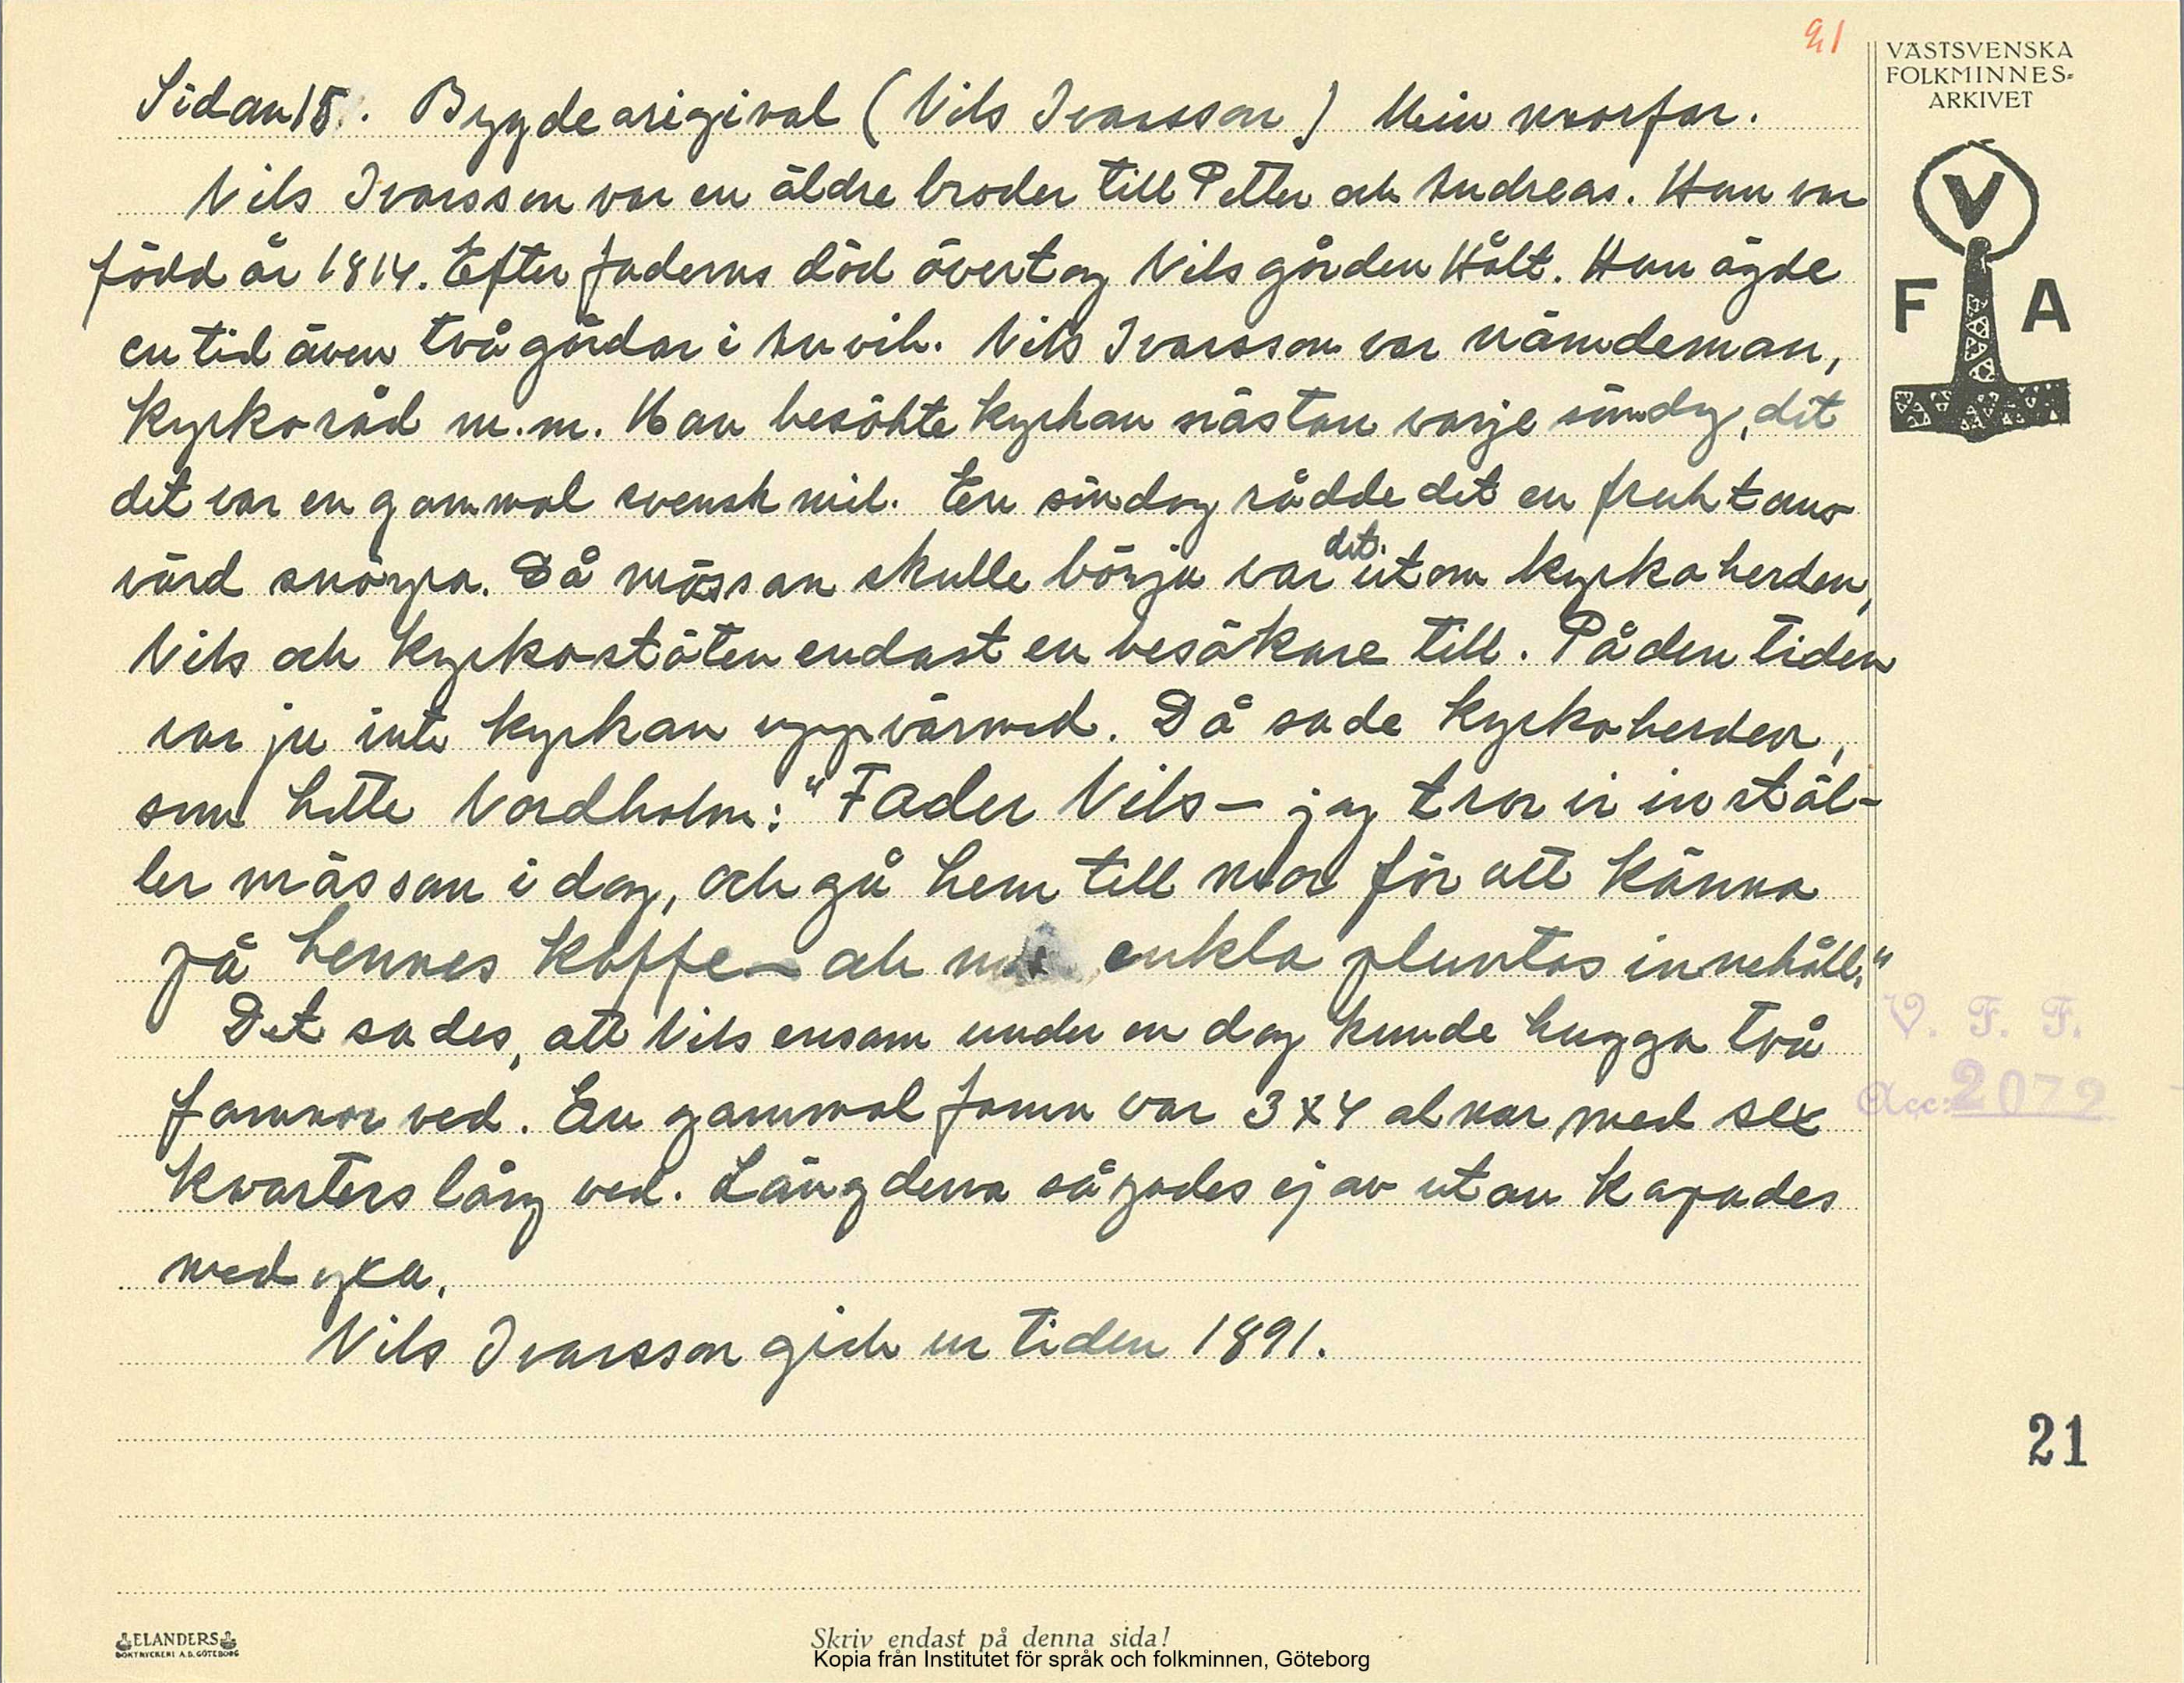 21
VÄSTSVENSKA
FOLKMINNES=
ARKIVET
V
F A
Sidan 15. Bygdeorigival (Nils Ivarsson) Min morfar.
Nils Ivarsson var en äldre broder till Petter och Andreas. Han var
född år 1814. Efter faderns död övertog Nils gården Hålt. Han ägde
en tid även två gårdar i Anvik. Nils Ivarsson var nämdeman,
kyrkoråd m.m. Han besökte kyrkan nästan varje söndag, dit
det var en gammal svensk mil. En söndag rådde det en fruktans-
värd snöyra. Då mässan skulle börja var det utom kyrkoherden,
Nils och kyrkostöten endast en besökare till. På den tiden
var ju inte kyrkan uppvärmd. Då sade kyrkoherden,
som hette Nordholm: "Fader Nils – jag tror vi instäl-
ler mässan i dag, och gå hem till mor för att känna
på hennes kaffe – och enkla pluntas innehåll."
Det sades, att Nils ensam under en dag kunde hugga två
famnar ved. En gammal famn var 3 x 4 alnar med sex
kvarters lång ved. Längderna sågades ej av utan kapades
med yxa.
Nils Ivarsson gick ur tiden 1891.
V. F. F.
Acc: 2072
21
ELANDERS
BOKTRYCKERI A.B. GÖTEBORG
Skriv endast på denna sida!
Kopia från Institutet för språk och folkminnen, Göteborg